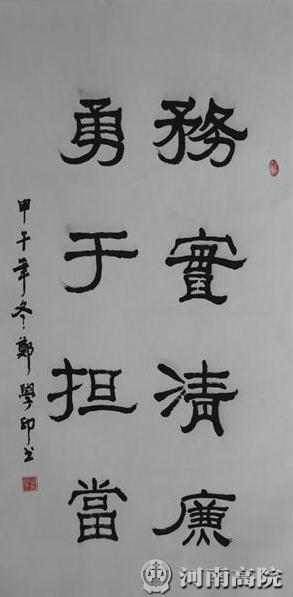 務實清廉
勇于担當
甲午年冬鄭學印书
河南高院